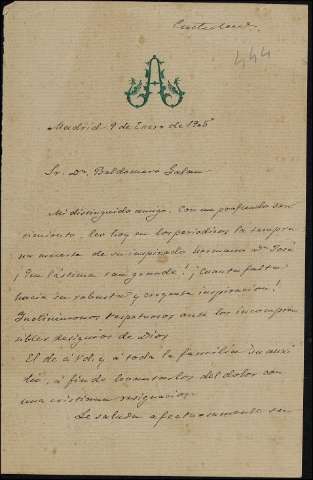 444
A
Madrid 9 de Enero de 1905
Sr. Dn. Baldomero Galan
Mi distinguido amigo: con un profundo sen
timiento, leo hoy en los periodicos la tempra
na muerte de su inspirado hermano Dn José
¡Que lástima tan grande! ¡Cuanta falta
hacia su robusta y creyente inspiracion!
Inclinemonos respetuosos ante los incompren
sibles designios de Dios.
El de á Vd. y á toda la familia su auxi
lio, á fin de levantarlos del dolor con
una cristiana resignacion.
Le saluda afectuosamente su